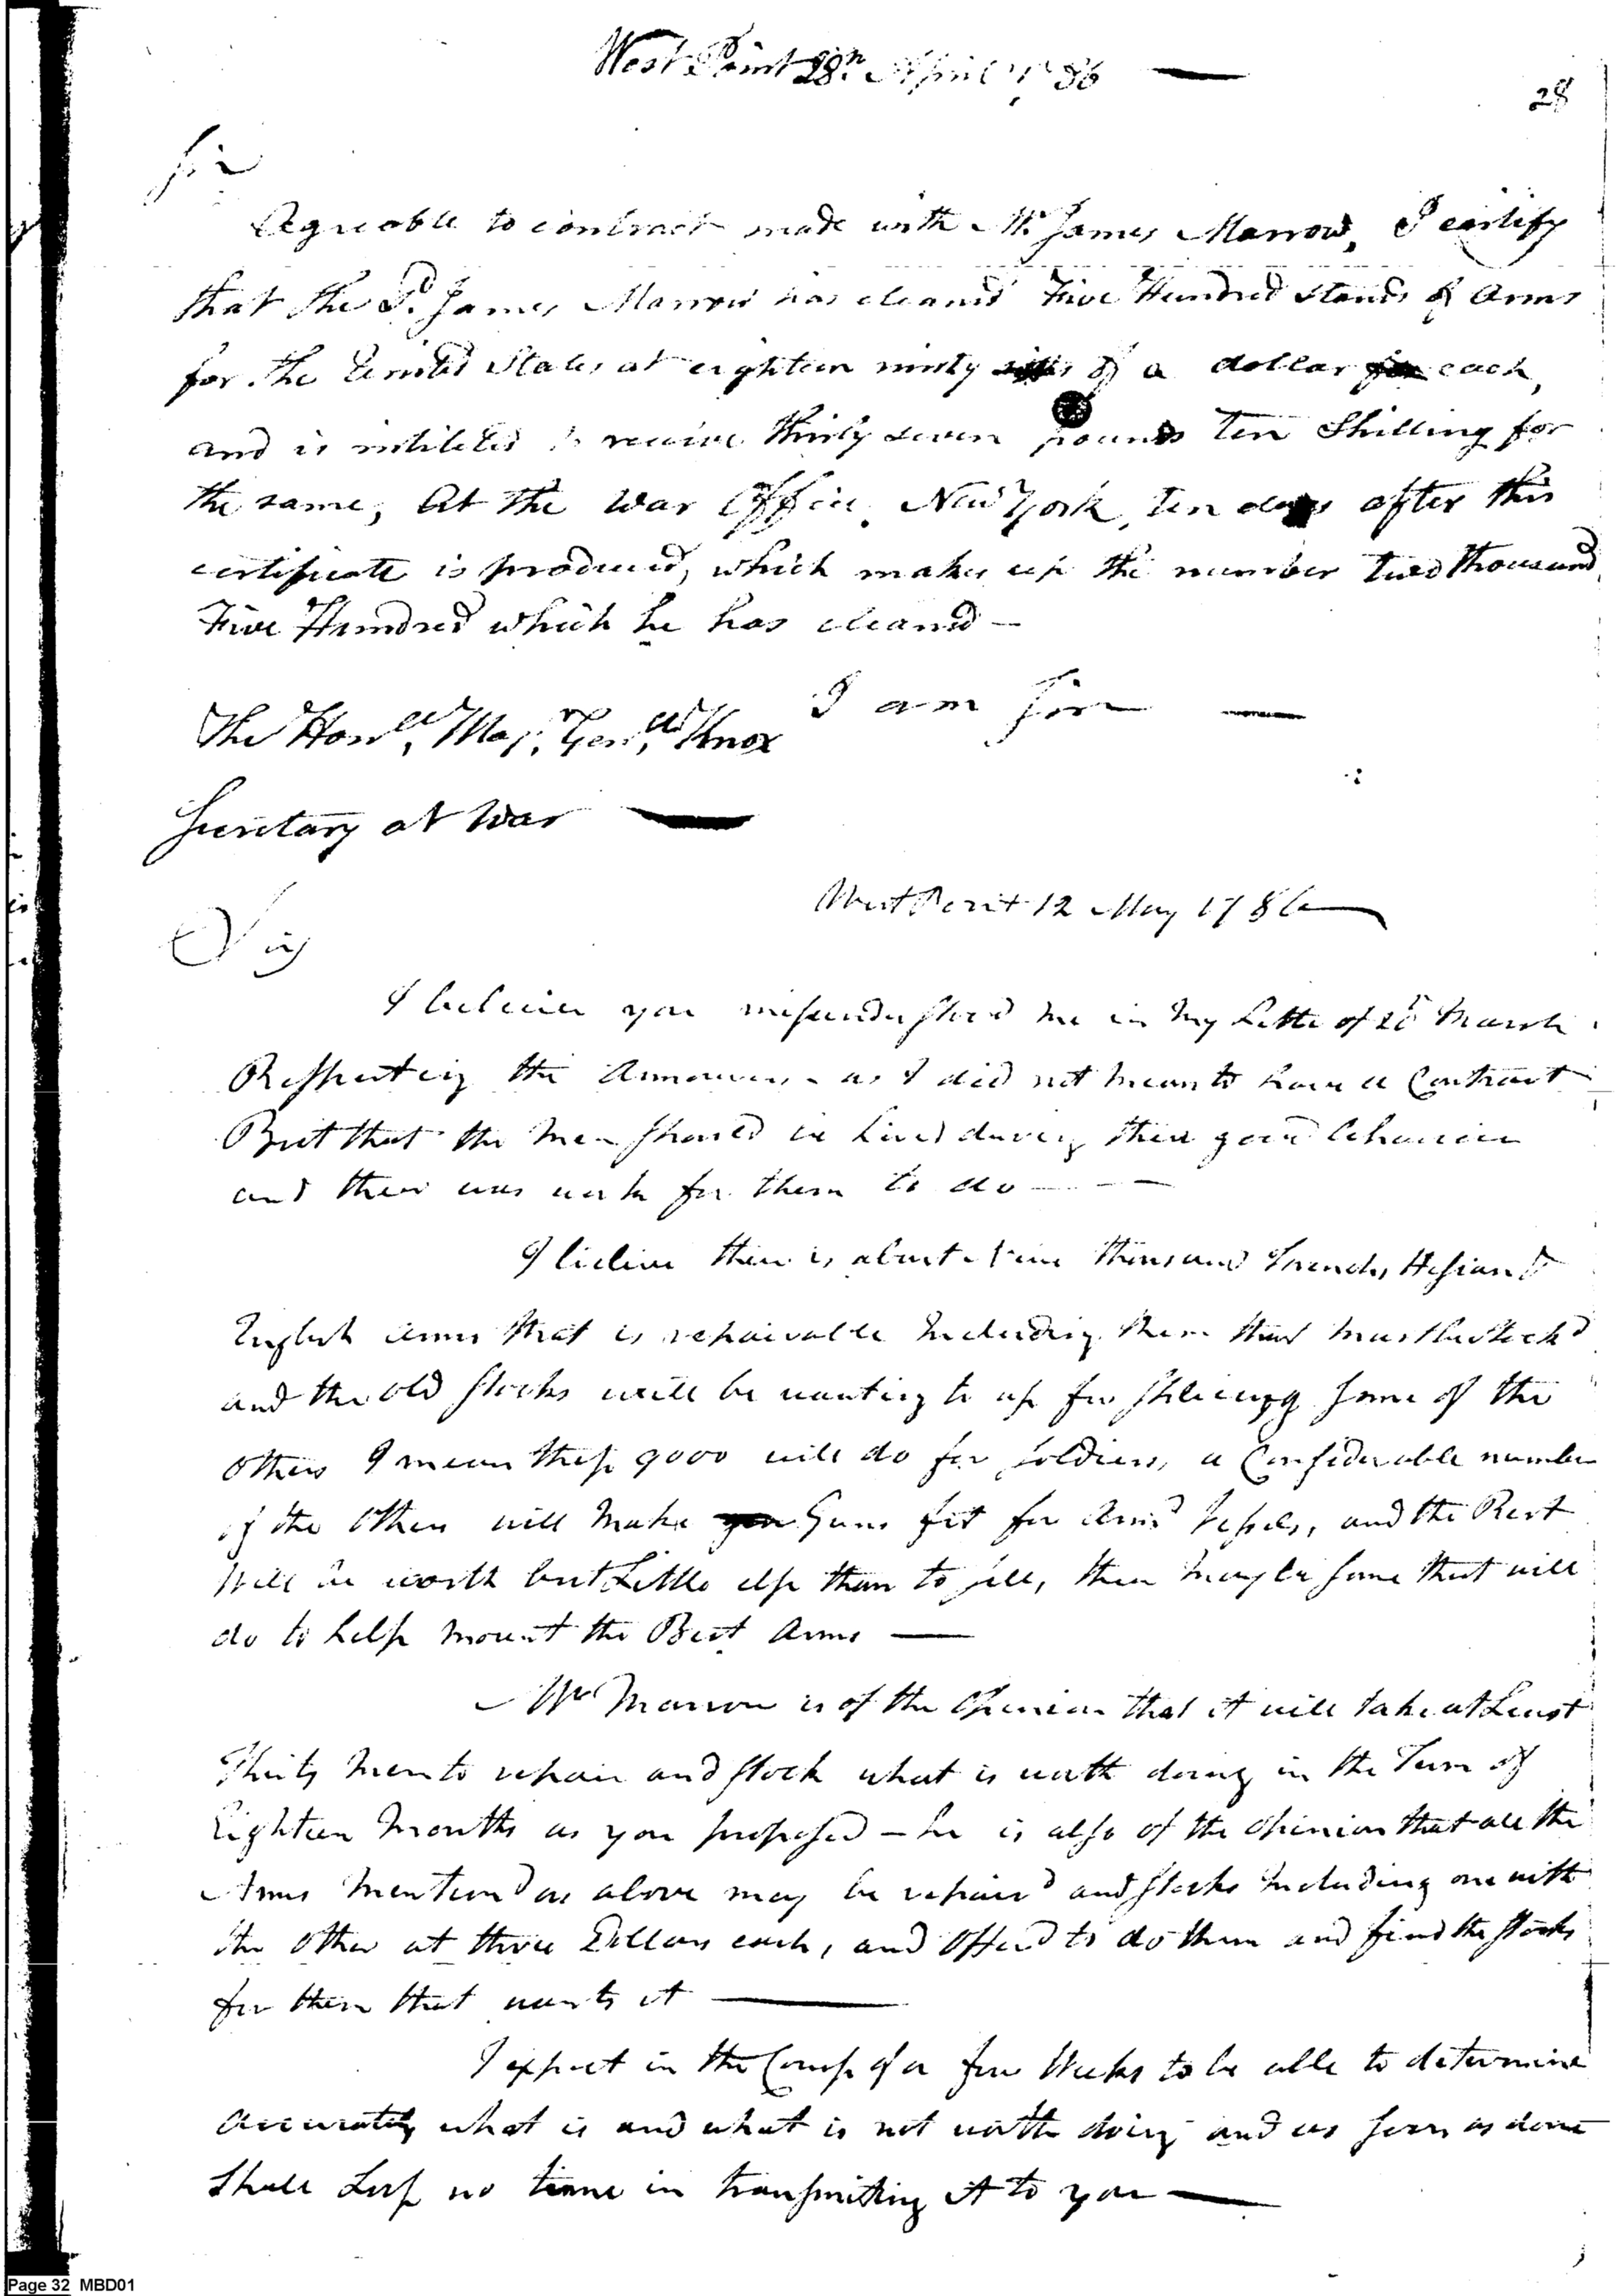 West Point 28th April 1786 —
28
Sir
Agreeable to contract made with Mr. James Marrow, I certify
that the Sd. James Marrow has cleaned Five Hundred Stands of Arms
for the United States at eighteen ninty of a dollar each,
and is intitled to receive thirty seven pounds Ten Shilling for
the same, At the War Office, New York, ten days after this
certificate is produced, which makes up the number Two thousand
Five Hundred which he has cleaned —
I am Sir —
The Honble. Majr. Genll. Knox
Secretary at War —
West Point 12 May 1786
Sir
I believe you misunderstood me in my Letter of March
Respecting the Armourers - as I did not mean to have a Contract
But that the Men should be hired during their good behavior
and their was work for them to do — — —
I believe their is about Nine thousand French, Hesian &
English arms that is repairable Including them that must be stock'd
and the old stocks will be wanting to use for spliceing some of the
others I mean these 9000 will do for soldiers, a Considerable number
of the Others will make Guns fit for Arm'd Vessels, and the Rest
Will be worth but Little else than to sell, their may be some that will
do to help mount the Best Arms —
Mr Marrow is of the Opinion that it will take at Least
Thirty Men to repair and stock what is worth doing in the Term of
Eighteen Months as you proposed - he is also of the opinion that all the
Arms Mention'd as above may be repair'd and stocks Including one with
the other at three Dollars each, and Offer'd to do them and find the stocks
for them that wants it —
I expect in the Course of a few Weeks to be able to determine
Accurately what is and what is not worth doing and as soon as done
Shall Lose no time in transmitting it to you —
Page 32 MBD01